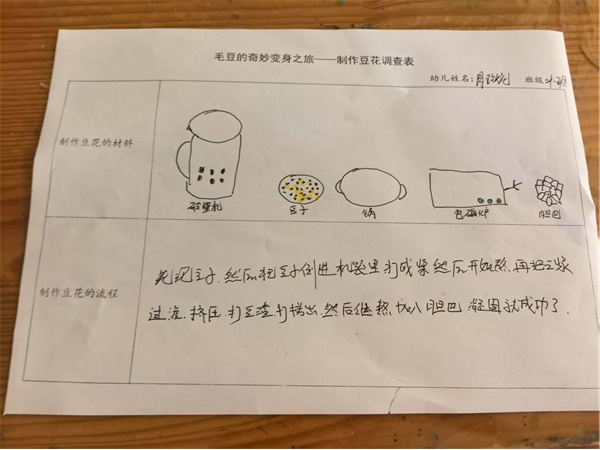 毛豆的奇妙变身之旅——制作豆花调查表
幼儿姓名: 班级:小班
制作豆花的材料
破壁机 豆子 锅 电磁炉 胆巴
制作豆花的流程
先泡豆子,然后把豆子倒进机器里打成浆然后开始熬,再把豆浆
过滤,挤压,打豆渣打捞出,然后继熬,加入胆巴凝固就成功了.